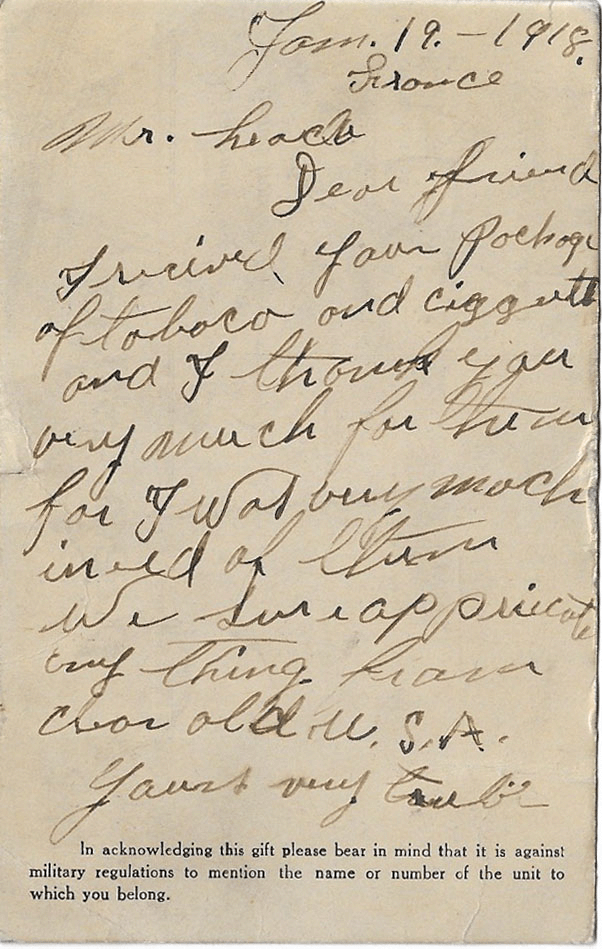 Jan. 19. - 1918.
France
Mr. Leach
Dear friend
I recived your package
of tobaco and ciggretts
and I thank you
very much for them
for I was very much
in need of them
We sure appriciate
any thing from
dear old U.S.A.
Yours very
In acknowledging this gift please bear in mind that it is against
military regulations to mention the name or number of the unit to
which you belong.